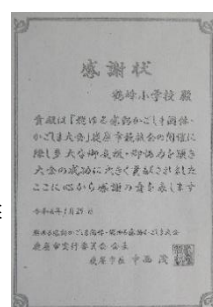 感謝状
鶴峰小学校 殿
貴殿は「燃ゆる感動かごしま国体・
かごしま大会」鹿屋市競技会の開催に
際し多大な御支援・御協力を頂き
大会の成功に大きく貢献されました
ここに心から感謝の意を表します
燃ゆる感動かごしま国体・燃ゆる感動かごしま大会
鹿屋市実行委員会 会長
鹿屋市長 中西 茂